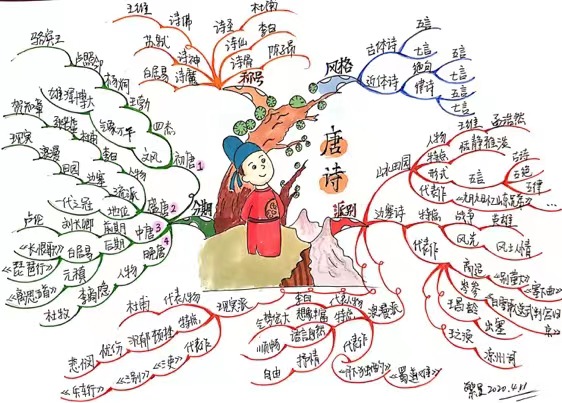 唐诗
称号
王维
诗佛
苏轼
诗神
白居易
诗魔
杜甫
诗圣
李白
诗仙
陈子昂
诗骨
风格
古体诗
五言
七言
近体诗
绝句
五言
七言
律诗
五言
七言
分期
初唐
1
四杰
王勃
杨炯
卢照邻
骆宾王
文风
雄浑博大
盛唐
2
人物
李白
杜甫
贺知章
流派
边塞
田园
浪漫
现实
地位
中唐
3
前期
刘长卿
卢纶
后期
白居易
《长恨歌》
《琵琶行》
元稹
《离思五首》
晚唐
4
人物
李商隐
杜牧
派别
山水田园
人物
王维
孟浩然
特点
恬静雅淡
形式
五言
古诗
五绝
五律
代表作
边塞诗
特点
战争
英雄
风光
风土人情
代表作
高适
《别董大》
《塞下曲》
岑参
《白雪歌送武判官归京》
王昌龄
出塞
王之涣
凉州词
浪漫派
代表人物
李白
特点
想象丰富
气势宏大
语言自然
顺畅
抒情
自由
代表作
《蜀道难》
现实派
代表人物
杜甫
特点
沉郁顿挫
忧伤
悲悯
代表作
《三吏》
《三别》
《兵车行》
2020.4.11